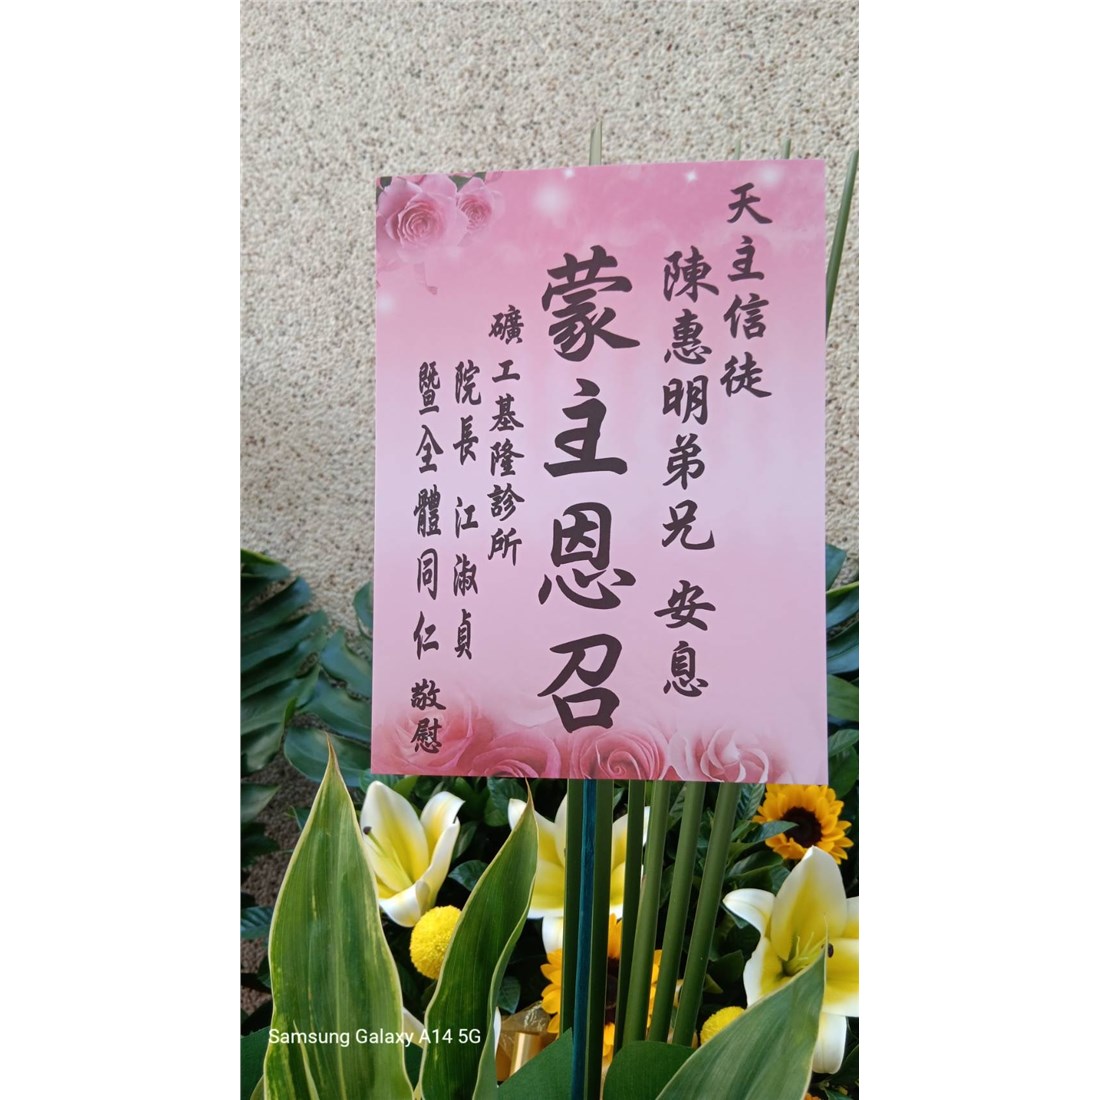 天主信徒
陳惠明弟兄 安息
蒙主恩召
礦工基隆診所
院長 江淑貞
暨全體同仁 敬慰
Samsung Galaxy A14 5G